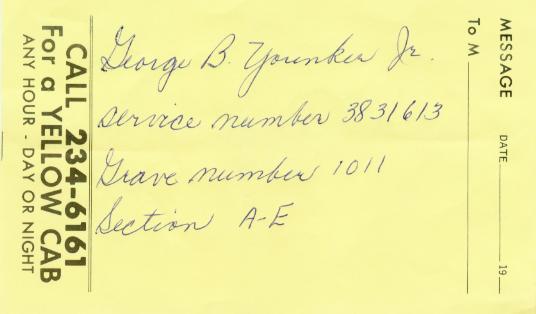 George B. Younker Jr.
service number 3831613
Grave number 1011
Section A-E
CALL 234-6161
For a YELLOW CAB
ANY HOUR - DAY OR NIGHT
MESSAGE DATE 19
To M